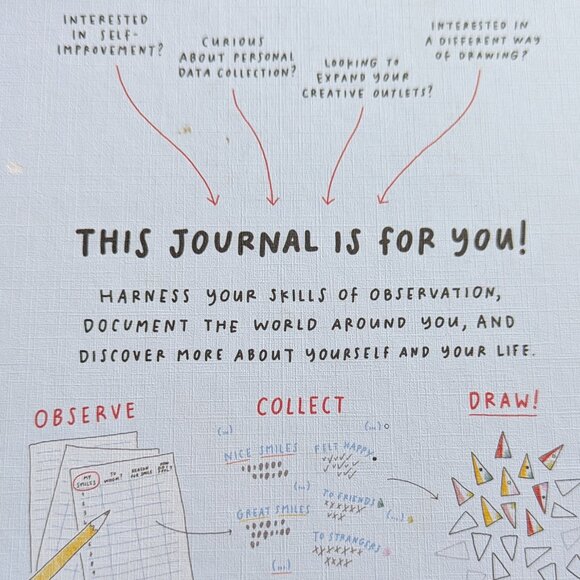 INTERESTED
IN SELF-
IMPROVEMENT?
CURIOUS
ABOUT PERSONAL
DATA COLLECTION?
LOOKING TO
EXPAND YOUR
CREATIVE OUTLETS?
INTERESTED IN
A DIFFERENT WAY
OF DRAWING?
THIS JOURNAL IS FOR YOU!
HARNESS YOUR SKILLS OF OBSERVATION,
DOCUMENT THE WORLD AROUND YOU, AND
DISCOVER MORE ABOUT YOURSELF AND YOUR LIFE.
OBSERVE
MY
SMILES
TO
WHOM?
REASON
FOR SMILE
HOW
DID I
FEEL?
COLLECT
(...)
(...)
NICE SMILES
FELT HAPPY
(...)
GREAT SMILES
TO FRIENDS
(...)
TO STRANGERS
(...)
DRAW!